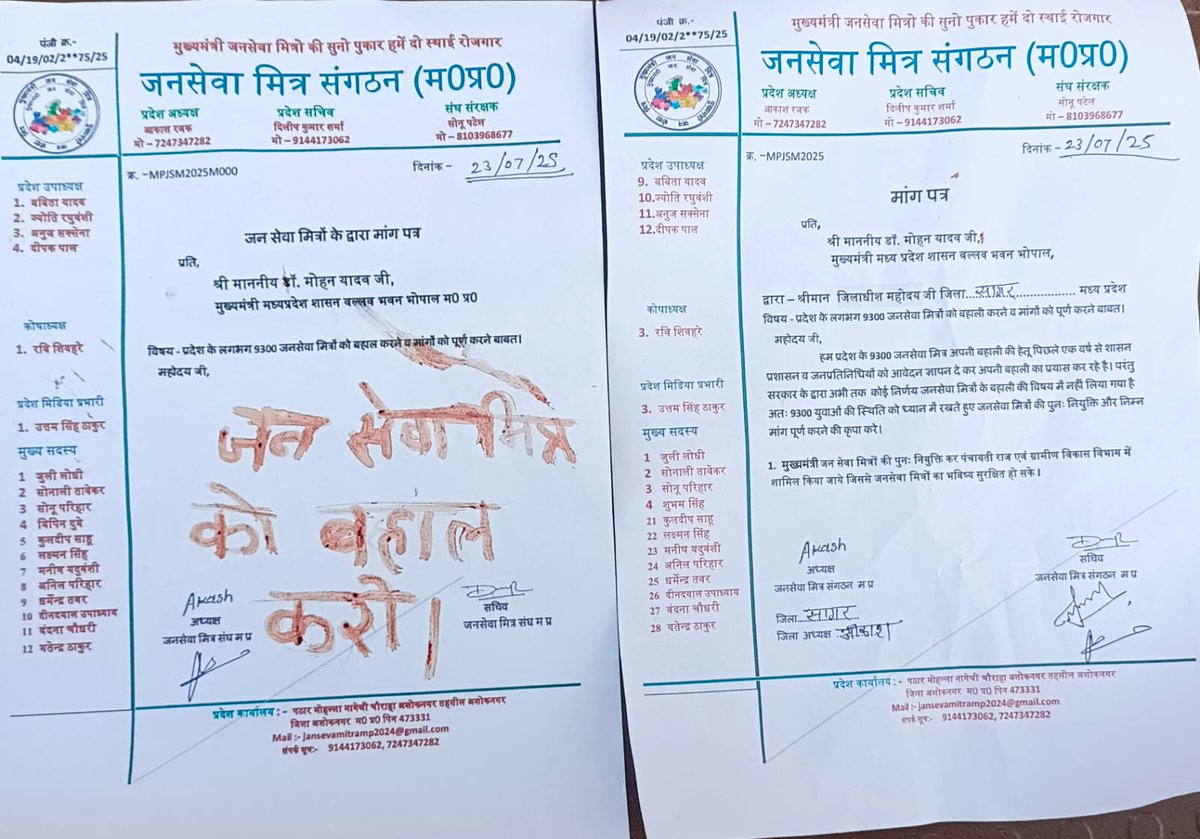 पंजी क्र.-
04/19/02/2**75/25
मुख्यमंत्री जनसेवा मित्रो की सुनो पुकार हमें दो स्थाई रोजगार
जनसेवा मित्र संगठन (म0प्र0)
प्रदेश अध्यक्ष
आकाश रजक
मो – 7247347282
प्रदेश सचिव
दिलीप कुमार शर्मा
मो -9144173062
संघ संरक्षक
सोनू पटेल
मो – 8103968677
क्र. –MPJSM2025M000
दिनांक – 23/07/25
प्रदेश उपाध्यक्ष
1. बबिता यादव
2. ज्योति रघुबंशी
3. अनुज सक्सेना
4. दीपक पाल
कोषाध्यक्ष
1. रवि शिवहरे
प्रदेश मिडिया प्रभारी
1. उत्तम सिंह ठाकुर
मुख्य सदस्य
1 जुली लोधी
2 सोनाली ताबेकर
3 सोनू परिहार
4 बिपिन दुबे
5 कुलदीप साहू
6 लक्ष्मन सिंह
7 मनीष यदुबंशी
8 अनिल परिहार
9 धर्मेन्द्र तवर
10 दीनदयाल उपाध्याय
11 वंदना चौधरी
12 यतेन्द्र ठाकुर
जन सेवा मित्रों के द्वारा मांग पत्र
प्रति,
श्री माननीय डॉ. मोहन यादव जी,
मुख्यमंत्री मध्यप्रदेश शासन वल्लव भवन भोपाल म0 प्र0
विषय - प्रदेश के लगभग 9300 जनसेवा मित्रों को बहाल करने व मांगों को पूर्ण करने बाबत।
महोदय जी,
जन सेवा मित्र
को बहाल
करो।
Akash
अध्यक्ष
जनसेवा मित्र संघ म प्र
सचिव
जनसेवा मित्र संघ म प्र
प्रदेश कार्यालय : - पठार मोहल्ला नागेची चौराहा अशोकनगर तहसील अशोकनगर
जिला अशोकनगर म0 प्र0 पिन 473331
Mail :- jansevamitramp2024@gmail.com
संपर्क सूत्र:- 9144173062, 7247347282
पंजी क्र.-
04/19/02/2**75/25
मुख्यमंत्री जनसेवा मित्रो की सुनो पुकार हमें दो स्थाई रोजगार
जनसेवा मित्र संगठन (म0प्र0)
प्रदेश अध्यक्ष
आकाश रजक
मो – 7247347282
प्रदेश सचिव
दिलीप कुमार शर्मा
मो -9144173062
संघ संरक्षक
सोनू पटेल
मो – 8103968677
क्र. –MPJSM2025
दिनांक – 23/07/25
प्रदेश उपाध्यक्ष
9. बबिता यादव
10.ज्योति रघुबंशी
11.अनुज सक्सेना
12.दीपक पाल
कोषाध्यक्ष
3. रवि शिवहरे
प्रदेश मिडिया प्रभारी
3. उत्तम सिंह ठाकुर
मुख्य सदस्य
1 जुली लोधी
2 सोनाली ताबेकर
3 सोनू परिहार
4 शुभम सिंह
21 कुलदीप साहू
22 लक्ष्मन सिंह
23 मनीष यदुबंशी
24 अनिल परिहार
25 धर्मेन्द्र तवर
26 दीनदयाल उपाध्याय
27 वंदना चौधरी
28 यतेन्द्र ठाकुर
मांग पत्र
प्रति,
श्री माननीय डॉ. मोहन यादव जी,
मुख्यमंत्री मध्य प्रदेश शासन वल्लव भवन भोपाल,
द्वारा – श्रीमान जिलाधीश महोदय जी जिला....सागर................ मध्य प्रदेश
विषय - प्रदेश के लगभग 9300 जनसेवा मित्रों को बहाली करने व मांगों को पूर्ण करने बाबत।
महोदय जी,
हम प्रदेश के 9300 जनसेवा मित्र अपनी बहाली की हेतू पिछले एक वर्ष से शासन
प्रशासन व जनप्रतिनिधियों को आवेदन ज्ञापन दे कर अपनी बहाली का प्रयास कर रहे है। परंतु
सरकार के द्वारा अभी तक कोई निर्णय जनसेवा मित्रों के बहाली की विषय में नहीं लिया गया है
अतः 9300 युवाओं की स्थिति को ध्यान में रखते हुए जनसेवा मित्रों की पुनः नियुक्ति और निम्न
मांग पूर्ण करने की कृपा करे।
1. मुख्यमंत्री जन सेवा मित्रों की पुनः नियुक्ति कर पंचायती राज एवं ग्रामीण बिकास विभाग में
शामिल किया जाये जिससे जनसेवा मित्रों का भबिष्य सुरक्षित हो सके।
Akash
अध्यक्ष
जनसेवा मित्र संगठन म प्र
सचिव
जनसेवा मित्र संगठन म प्र
जिला....सागर
जिला अध्यक्ष :आकाश
प्रदेश कार्यालय : - पठार मोहल्ला नागेची चौराहा अशोकनगर तहसील अशोकनगर
जिला अशोकनगर म0 प्र0 पिन 473331
Mail :- jansevamitramp2024@gmail.com
संपर्क सूत्र:- 9144173062, 7247347282